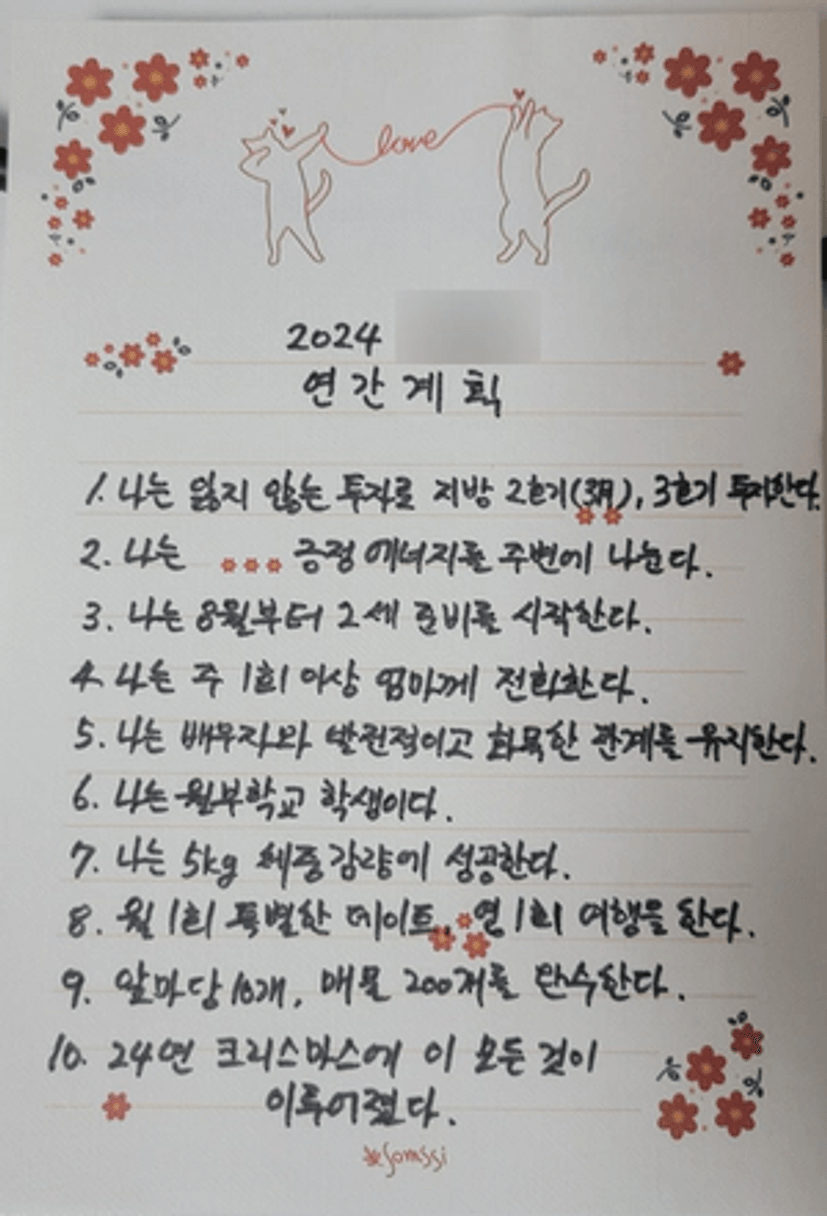 love
2024
연간계획
1. 나는 잃지 않는 투자로 지방 2호기(3月), 3호기 투자한다.
2. 나는 긍정 에너지를 주변에 나눈다.
3. 나는 8월부터 2세 준비를 시작한다.
4. 나는 주 1회 이상 엄마께 전화한다.
5. 나는 배우자와 발전적이고 화목한 관계를 유지한다.
6. 나는 월부학교 학생이다.
7. 나는 5kg 체중감량에 성공한다.
8. 월 1회 특별한 데이트, 연 1회 여행을 한다.
9. 앞마당 10개, 매물 200개를 완수한다.
10. 24년 크리스마스에 이 모든 것이
이루어졌다.
somssi